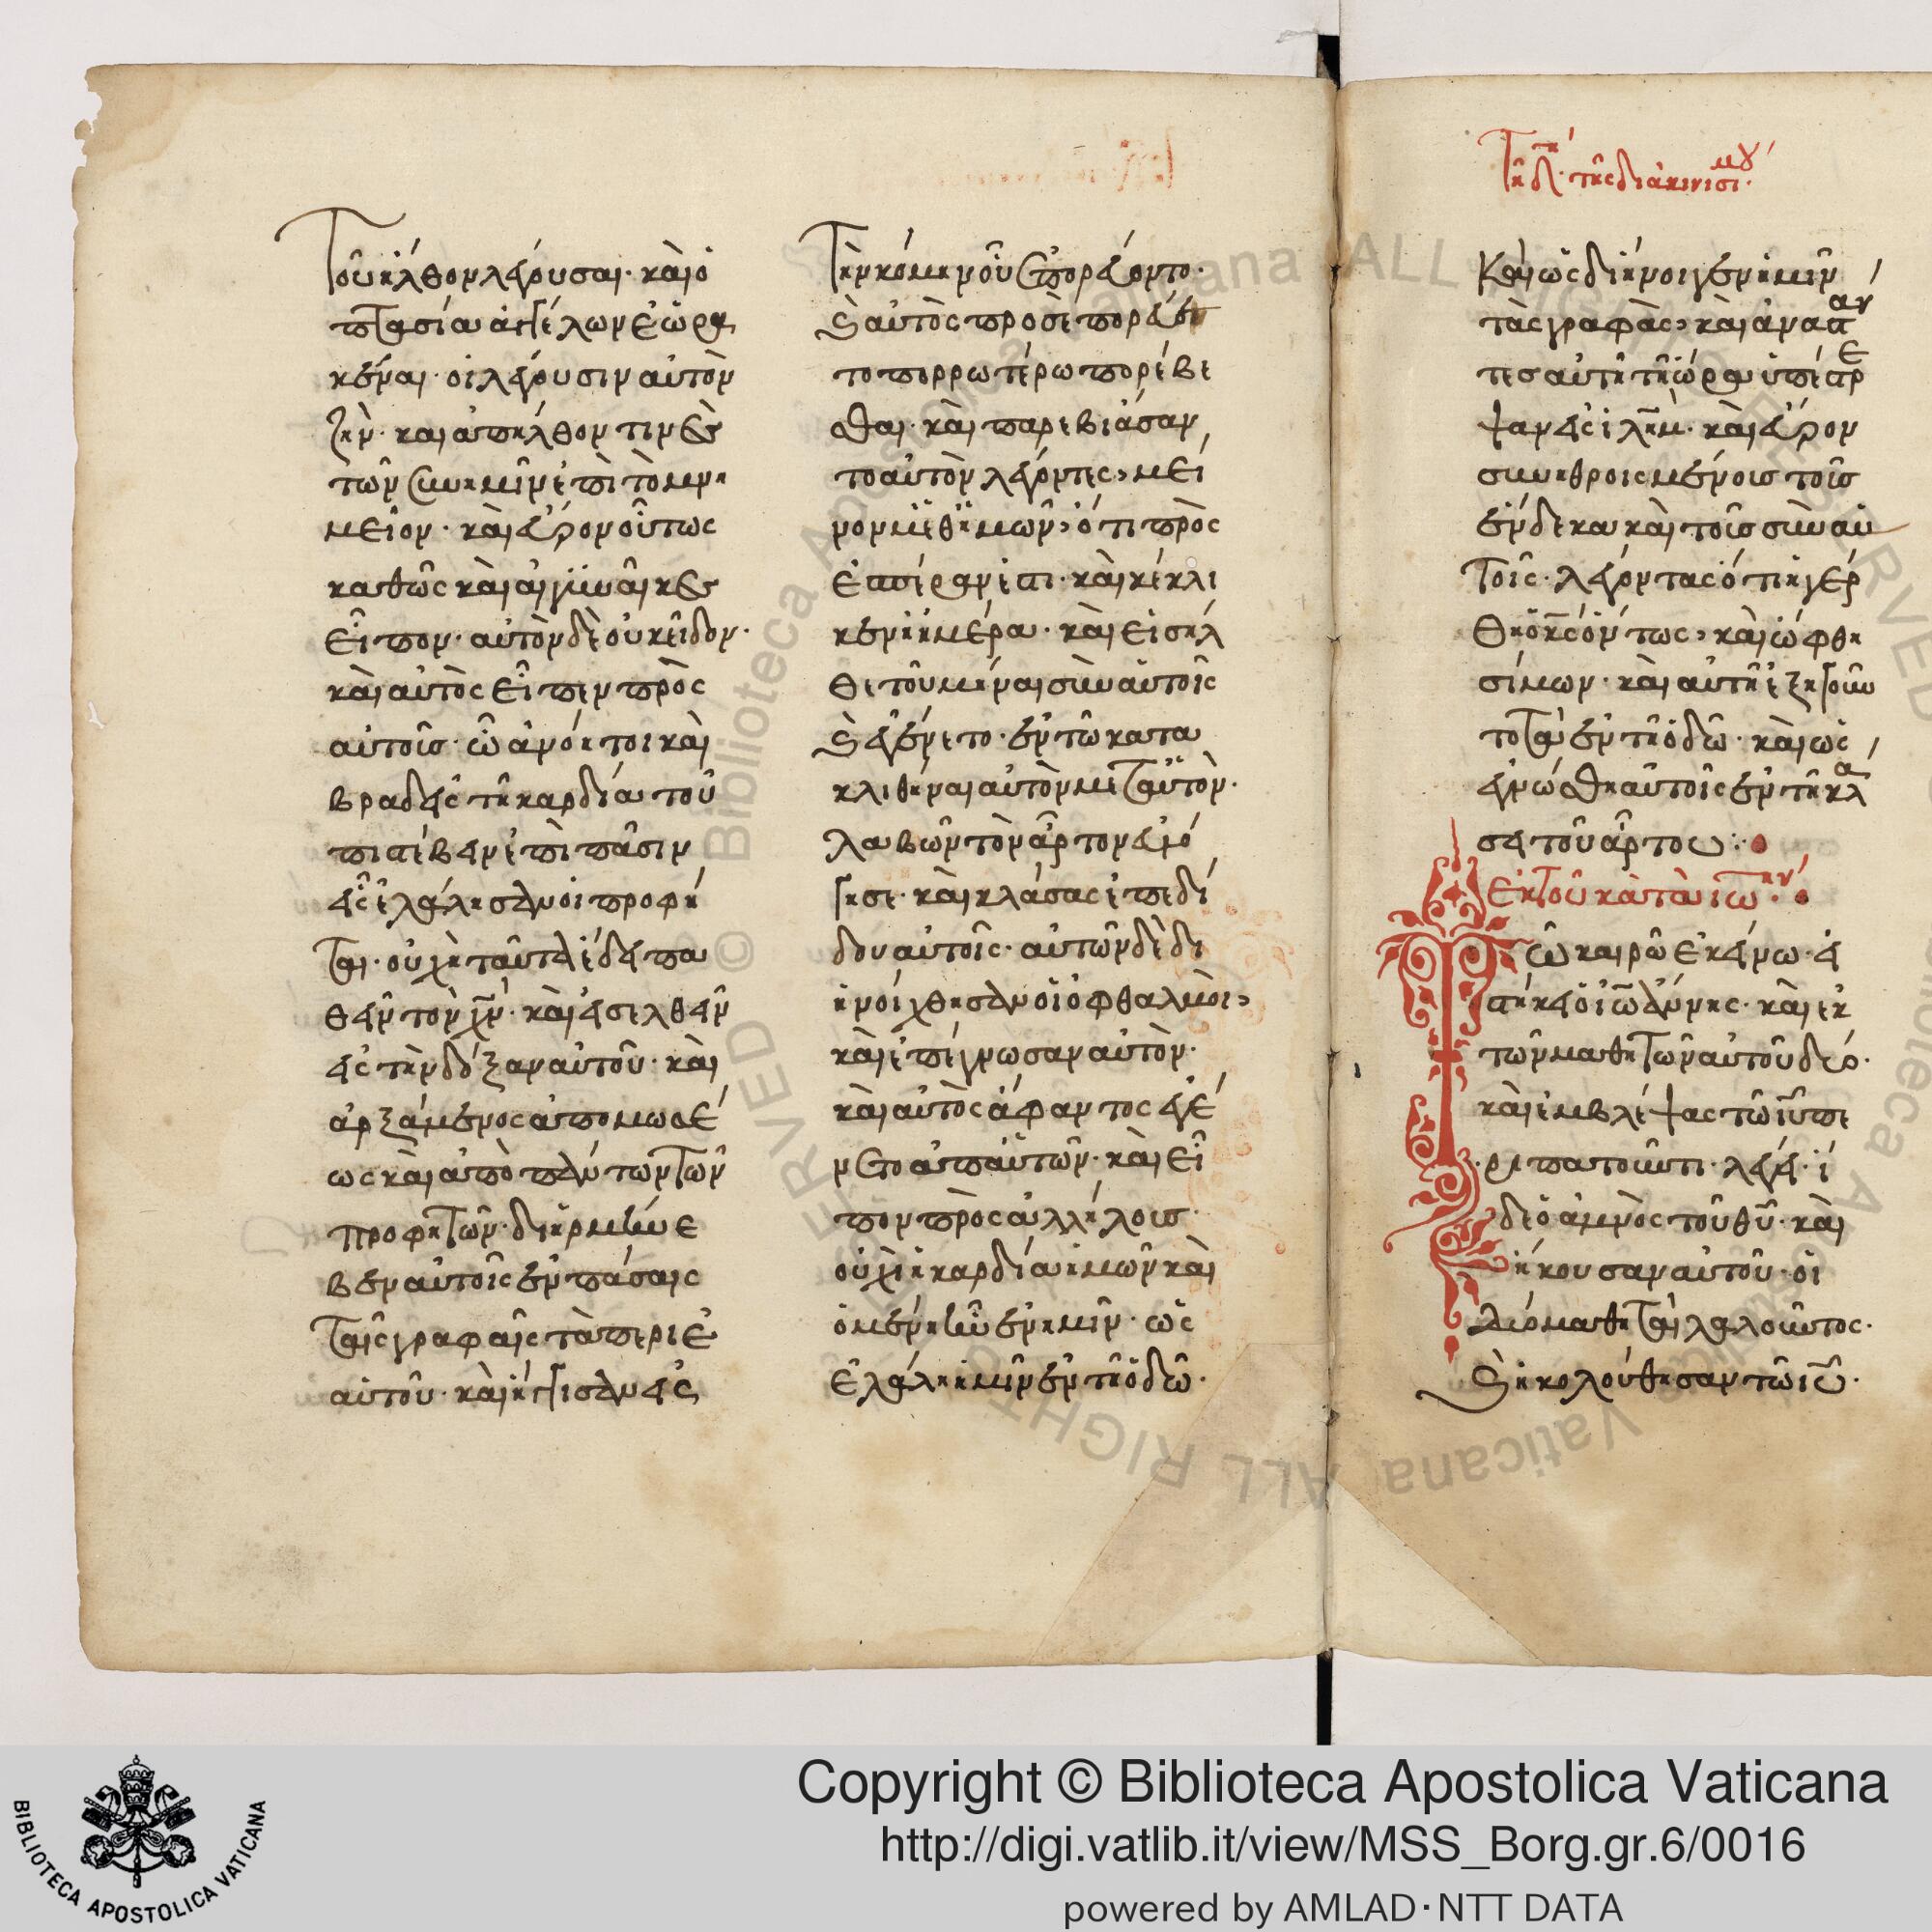 Τοῦ ἦλθον λέγουσαι· καὶ ὀ
πτασίαν ἀγγέλων ἑωρα
κέναι· οἳ λέγουσιν αὐτὸν
ζῆν· καὶ ἀπῆλθον τινὲς
τῶν σὺν ἡμῖν ἐπὶ τὸ μνη
μεῖον· καὶ εὗρον οὕτως
καθὼς καὶ αἱ γυναῖκες
εἶπον· αὐτὸν δὲ οὐκ εἶδον·
καὶ αὐτὸς εἶπεν πρὸς
αὐτοῖς· ὦ ἀνόητοι καὶ
βραδεῖς τῇ καρδία τοῦ
πιστέβειν ἐπὶ πᾶσιν
εἷς ἐλάλησαν οἱ προφῆ
ται· οὐχὶ ταῦτα ἔδει πα
θεῖν τὸν χ̅ν̅· καὶ εἰσελθεῖν
εἰς τὴν δόξαν αὐτοῦ· καὶ
ἀρξάμενος ἀπὸ μωσέ
ως καὶ ἀπὸ πάντων τῶν
προφητῶν· διηρμήνε
βεν αὐτοῖς ἐν πάσαις
ταῖς γραφαῖς τὰ περὶ ἑ
αυτοῦ· καὶ ἤγγισαν εἰς
Τὴν κόμην οὗ ἐπορεύοντο·
Καὶ αὐτὸς προσεπορεύε
το πορρωτέρω πορέβε
σθαι· καὶ παρεβιάσαν
το αὐτὸν λέγοντες, μεῖ
νον μεθ ἡμῶν, ὅτι πρὸς
ἑσπέραν ἐστι· καὶ κέκλι
κεν ἡ ἡμέρα· καὶ εἰσῆλ
θε τοῦ μῆναι σὺν αὐτοῖς
Καὶ ἐγένετο· ἐν τῶ κατα
κλιθῆναι αὐτὸν μετ αὐτὸν·
λαβὼν τὸν ἄρτον εὐλό
γησε· καὶ κλάσας ἐπεδί
δου αὐτοῖς· αὐτῶν δὲ δι
ηνοίχθησαν οἱ ὀφθαλμοὶ,
καὶ ἐπέγνωσαν αὐτὸν·
καὶ αὐτὸς ἄφαντος ἐγέ
νετο ἀπ αὐτῶν· καὶ εἶ
πον πρὸς ἀλλήλοις·
οὐχὶ ἡ καρδία ἡμῶν καὶ
ομένη ἦν ἐν ἡμῖν· ὡς
ἐλάλη ἡμῖν ἐν τῇ ὁδῶ·
Τῇ δ· τῆς διακινισίμου
Καὶ ὡς διήνοιγεν ἡμῖν
τὰς γραφὰς, καὶ ἀναστάν
τες αὐτῇ τῇ ὥρα ὑπέστρε
ψαν εἰς ἰλ̅η̅μ̅· καὶ εὗρον
συνηθροισμένοις τοῖς
ἕνδεκα καὶ τοῖς σὺν αὐ
τοῖς· λέγοντας ὅτι ἠγέρ
θη ὁ κ̅ς̅ ὄντως, καὶ ὤφθη
σίμων· καὶ αὐτῆ ἐξηγοῦν
το τὰ ἐν τῇ ὁδῶ· καὶ ὡς
ἐγνώσθη αὐτοῖς ἐν τῇ κλά
σει τοῦ ἄρτου:
Ἐκ τοῦ κατὰ ιω
Τῶ καιρῶ ἐκείνω· εἰ
στήκει ὁ ἰω̅άννης· καὶ ἐκ
τῶν μαθητῶν αὐτοῦ δύο·
καὶ ἐμβλέψας τῶ ἰ̅υ̅ πε
ριπατοῦντι· λέγει· ἴ
δε ὁ ἀμνὸς τοῦ θ̅υ̅· καὶ
ἤκουσαν αὐτοῦ· οἱ
δύο μαθηταὶ λαλοῦντος·
Καὶ ἠκολούθησαν τῶ ἰ̅υ̅·
Biblioteca Apostolica Vaticana ALL RIGHTS RESERVED ©
BIBLIOTECA APOSTOLICA VATICANA
Copyright © Biblioteca Apostolica Vaticana
http://digi.vatlib.it/view/MSS_Borg.gr.6/0016
powered by AMLAD·NTT DATA